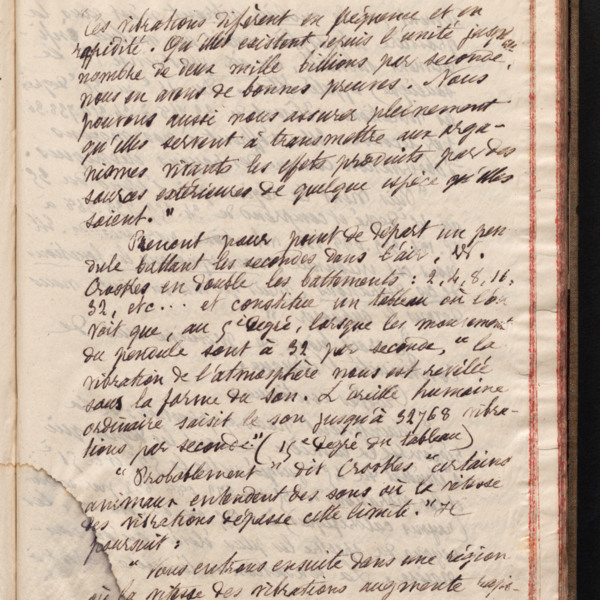 les vibrations diffèrent en fréquence et en
rapidité. Qu'elles existent depuis l'unité jusqu'au
nombre de deux mille billions par seconde,
nous en avons de bonnes preuves. Nous
pouvons aussi nous assurer pleinement
qu'elles servent à transmettre aux orga-
nismes vivants les effets produits par des
sources extérieures de quelque espèce qu'elles
soient."
Prenant pour point de départ un pen
dule battant les secondes dans l'air, W.
Crookes en double les battements : 2, 4, 8, 16,
32, etc... et constitue un tableau où l'on
voit que, au 5e degré, lorsque les mouvements
du pendule sont à 32 par seconde, "la
vibration de l'atmosphère nous est révélée
sous la forme du son. L'oreille humaine
ordinaire saisit le son jusqu'à 32768 vibra-
tions par seconde" (15e degré du tableau)
"Probablement" dit Crookes "certains
animaux entendent des sons où la vitesse
des vibrations dépasse cette limite." Il
poursuit :
"Nous entrons ensuite dans une région
où la vitesse des vibrations augmente rapi-